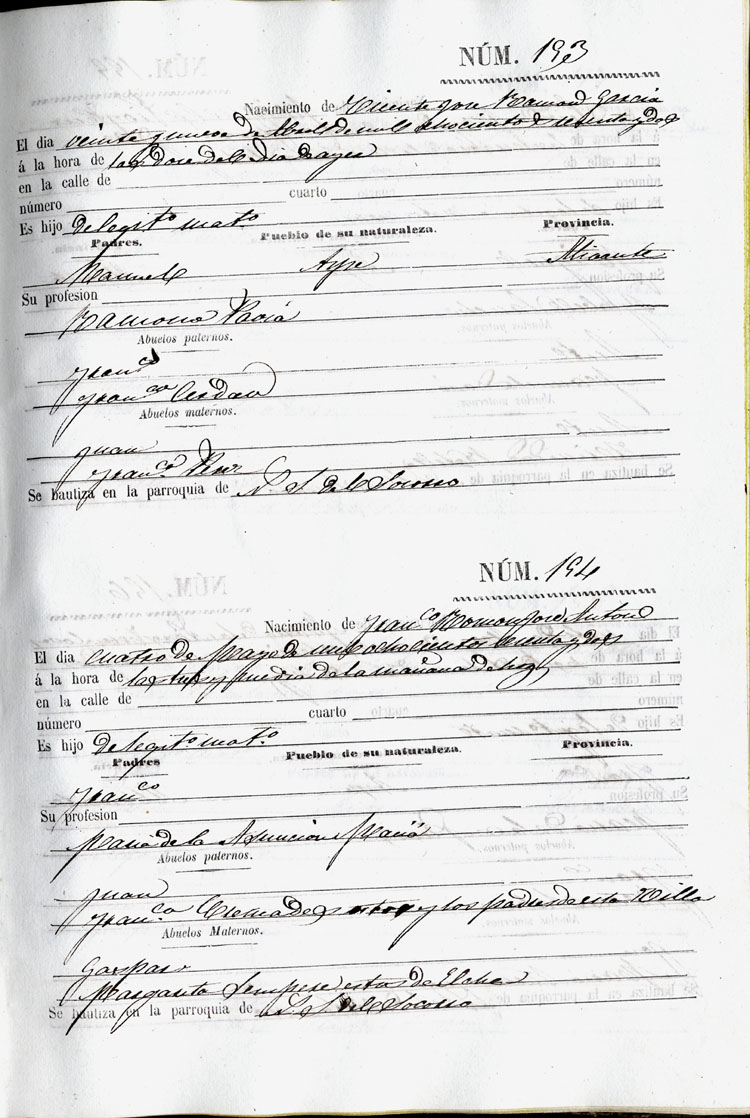 NÚM. 193
Nacimiento de Vicente Jose Ramon Garcia
El dia veinte y nueve de Abril de mil ochocientos sesenta y dos
á la hora de las doce del dia de ayer
en la calle de
número cuarto
Es hijo de legit.o mat.o
Padres. Pueblo de su naturaleza. Provincia.
Manuel Aspe Alicante
Su profesion
Ramona Maciá
Abuelos paternos.
Fran.co
Fran.ca Cerdan
Abuelos maternos.
Juan
Fran.ca
Se bautiza en la parroquia de N. S. del Socorro
NÚM. 194
Nacimiento de Fran.co Ramon Jose Anton
El dia cuatro de Mayo de mil ochocientos sesenta y dos
á la hora de las tres y media de la mañana de hoy
en la calle de
número cuarto
Es hijo de legit.o mat.o
Padres Pueblo de su naturaleza. Provincia.
Fran.co
Su profesion
Maria de la Asuncion Maciá
Abuelos paternos.
Juan
Fran.ca Cremades y los padres de esta Villa
Abuelos Maternos.
Gaspar
Margarita Sempere estos de Elche
Se bautiza en la parroquia de N. S. del Socorro